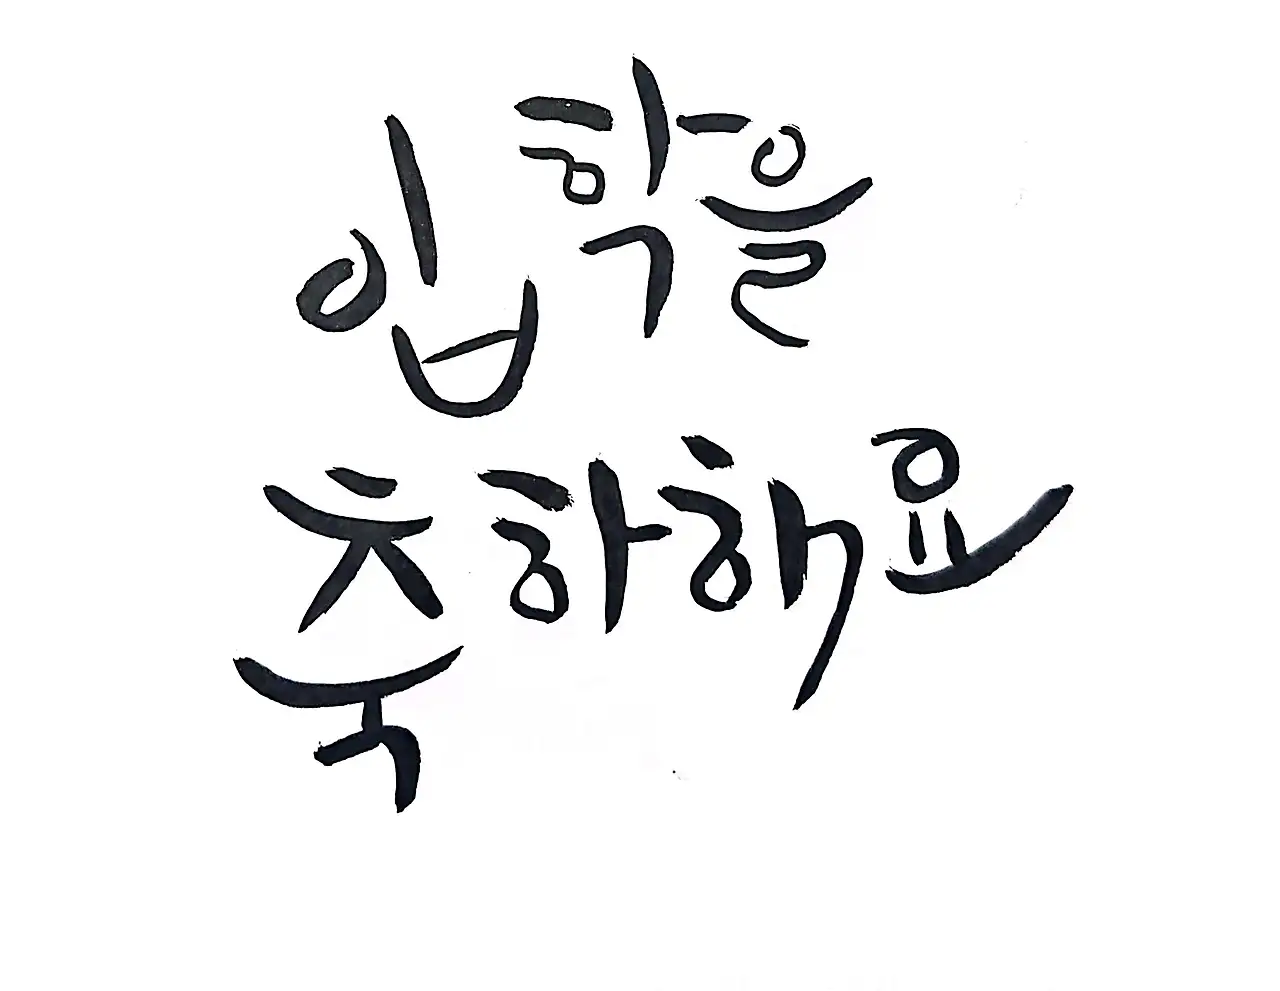 입학을
축하해요